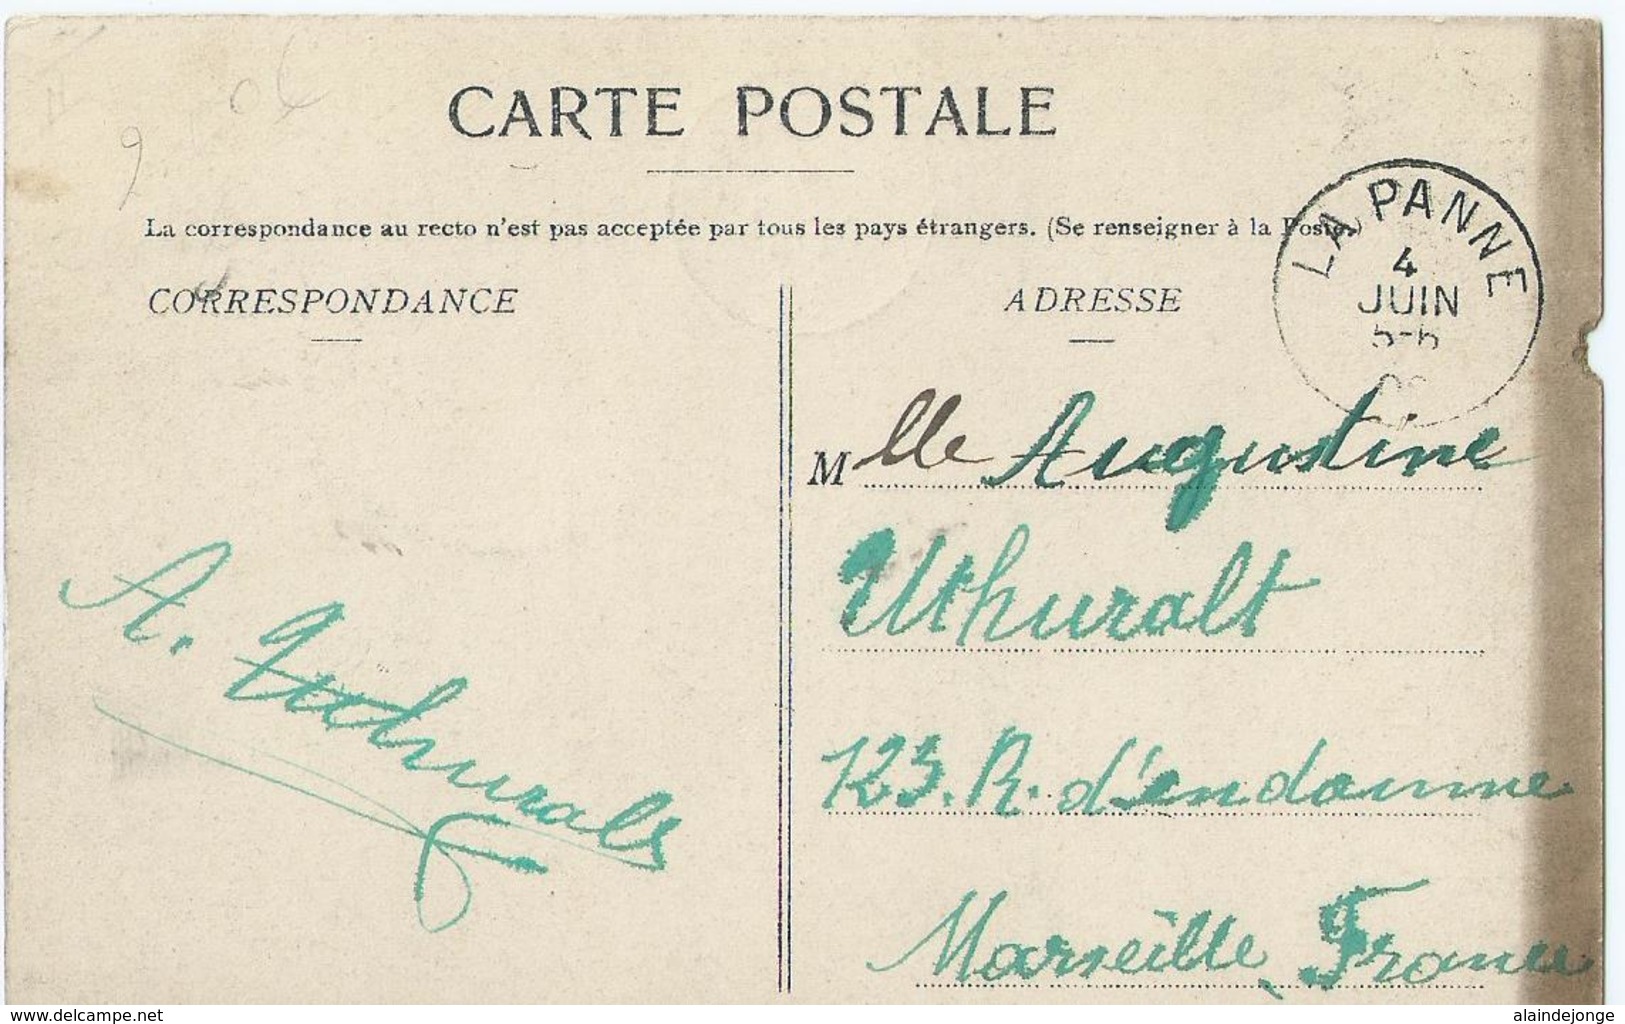 CARTE POSTALE
La correspondance au recto n'est pas acceptée par tous les pays étrangers. (Se renseigner à la Poste.)
CORRESPONDANCE
ADRESSE
LA PANNE
4
JUIN
5-6
Mlle Augustine
Uthuralt
123. R. d'endoumne
Marseille, France
A.
www.delcampe.net
alaindejonge